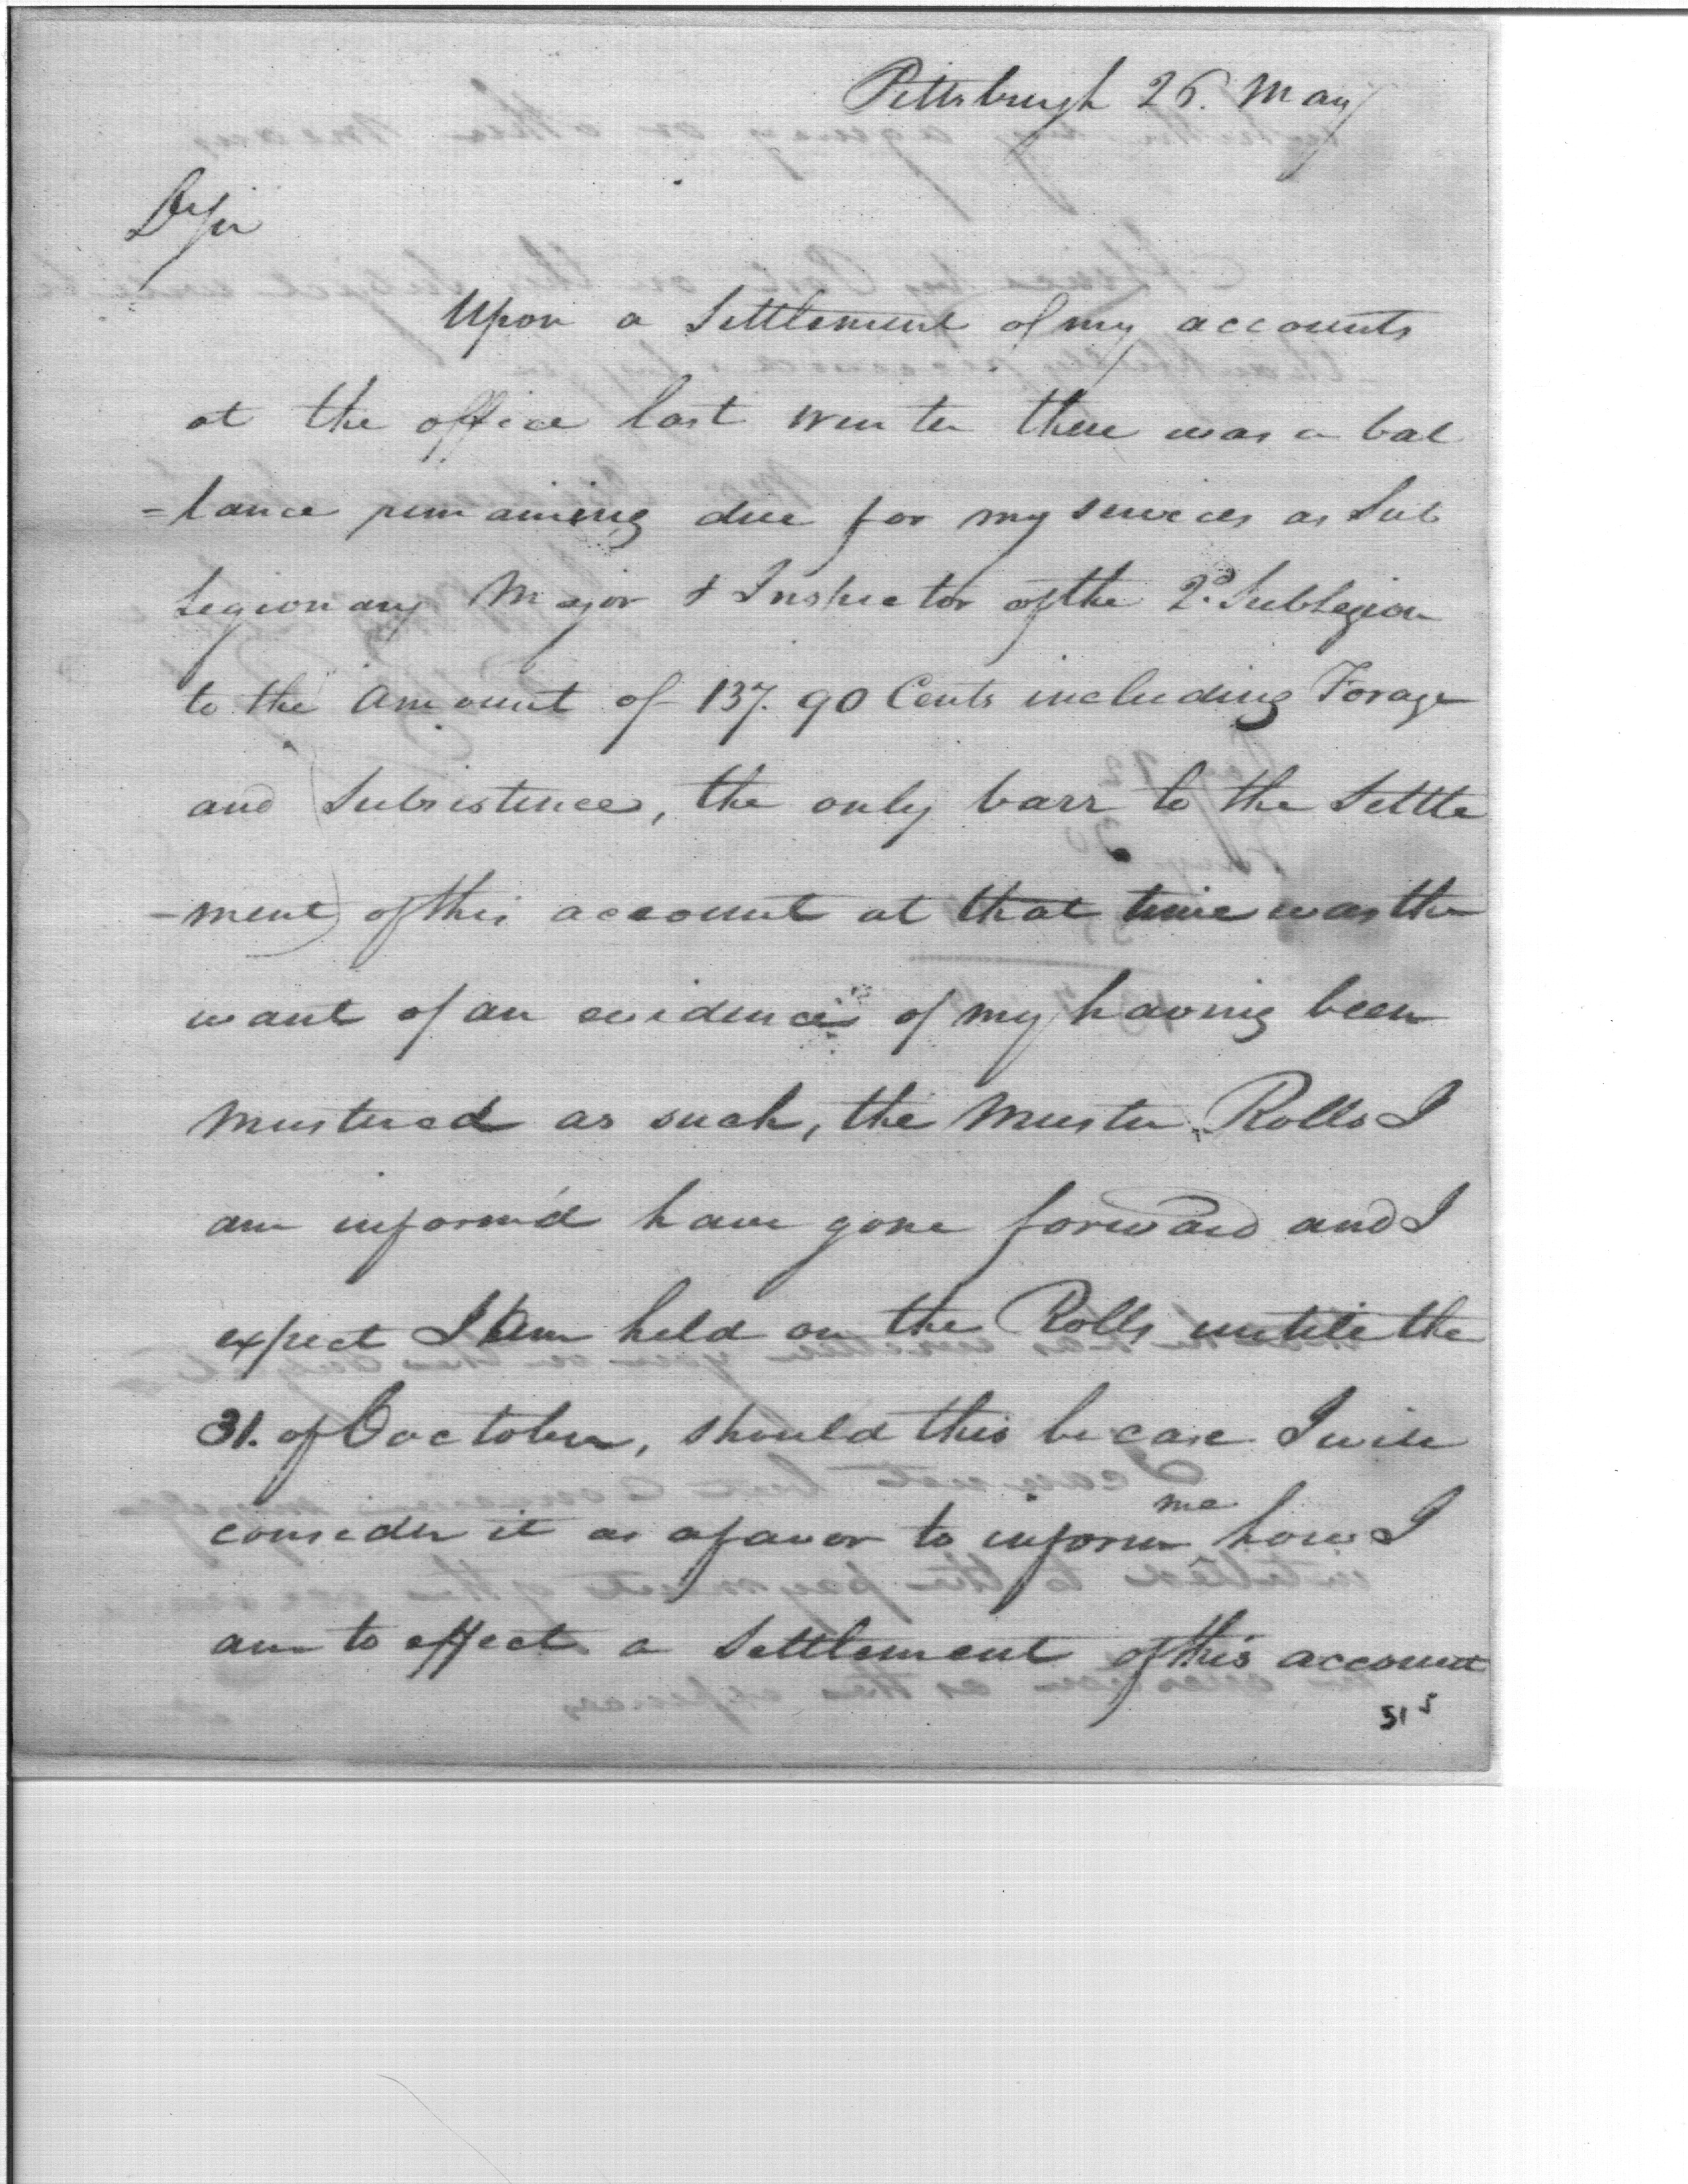 Pittsburgh 26. May
Dr Sir
Upon a Settlement of my accounts
at the office last winter there was a bal
=lance remaining due for my services as Sub
Legionary Major & Inspector of the 2d. Sublegion
to the amount of 137. 90 Cents including Forage
and Subsistence, the only barr to the Settle
-ment of this account at that time was the
want of an evidence of my having been
mustered as such, the Muster Rolls I
am inform'd have gone forward and I
expect I am held on the Rolls untill the
31. of October, should this be case I will
consider it as a favor to inform me how I
am to effect a Settlement of this account
515